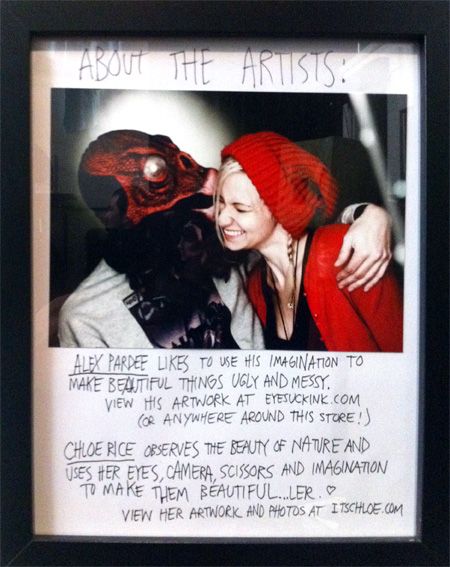 ABOUT THE ARTISTS:
ALEX PARDEE LIKES TO USE HIS IMAGINATION TO
MAKE BEAUTIFUL THINGS UGLY AND MESSY.
VIEW HIS ARTWORK AT EYESUCKINK.COM
(OR ANYWHERE AROUND THIS STORE!)
CHLOE RICE OBSERVES THE BEAUTY OF NATURE AND
USES HER EYES, CAMERA, SCISSORS AND IMAGINATION
TO MAKE THEM BEAUTIFUL...LER. ♡
VIEW HER ARTWORK AND PHOTOS AT ITSCHLOE.COM